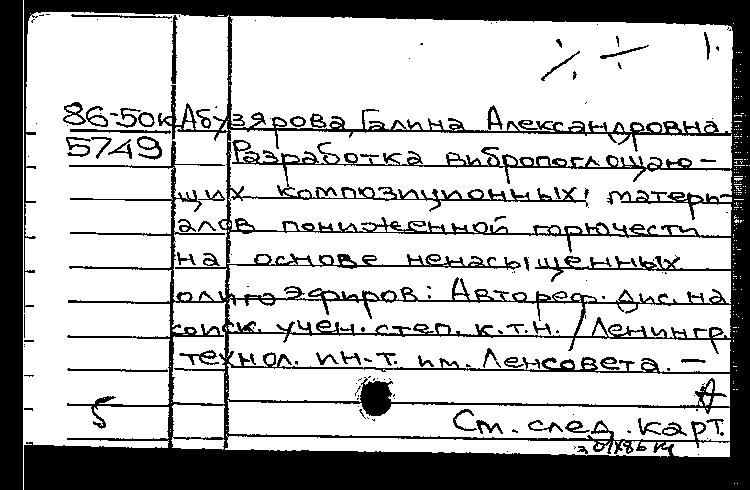 86-50к Абузярова, Галина Александровна.
5749 Разработка вибропоглощаю-
щих композиционных матери-
алов пониженной горючести
на основе ненасыщенных
олигоэфиров: Автореф. дис. на
соиск. учен. степ. к.т.н. / Ленингр.
технол. ин-т. им. Ленсовета. —
5
См. след. карт.